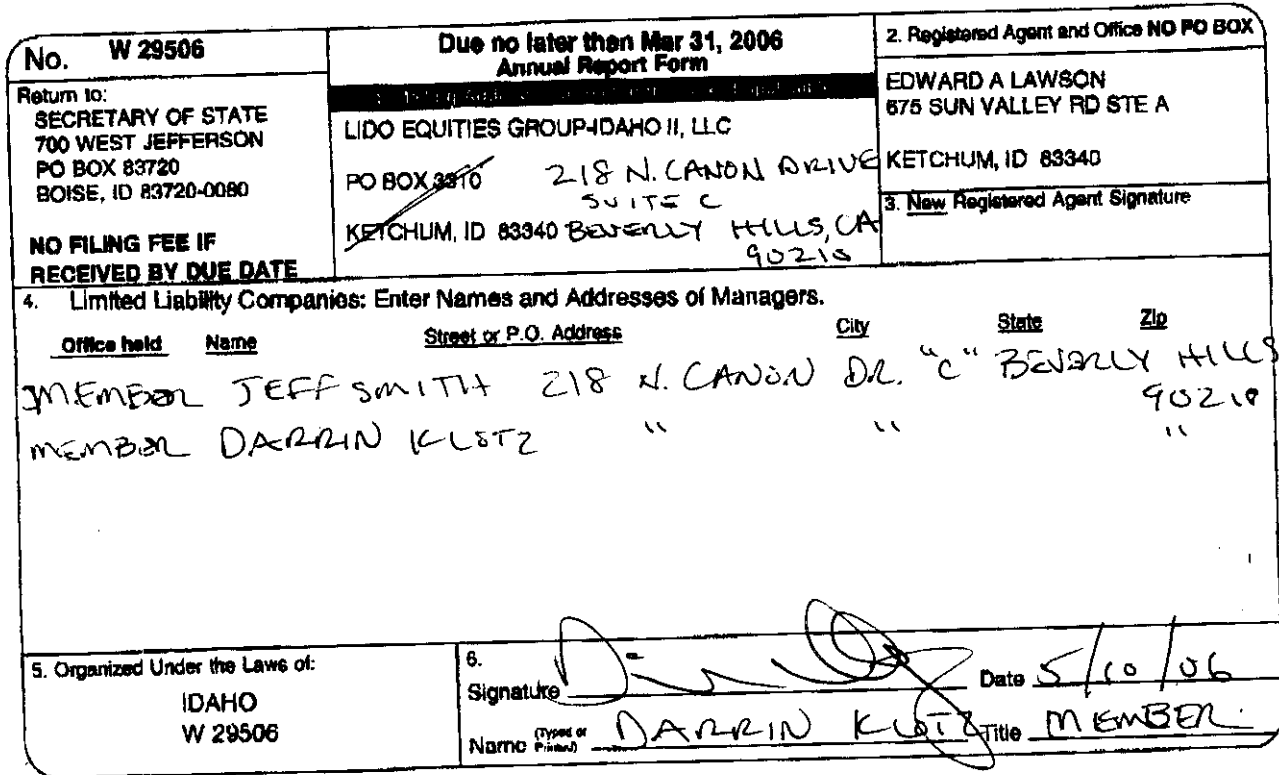 No. W 29506
Return to:
SECRETARY OF STATE
700 WEST JEFFERSON
PO BOX 83720
BOISE, ID 83720-0080
NO FILING FEE IF
RECEIVED BY DUE DATE
Due no later than Mar 31, 2006
Annual Report Form
LIDO EQUITIES GROUP-IDAHO II, LLC
PO BOX 3310 218 N. CANON DRIVE
SUITE C
KETCHUM, ID 83340 BEVERLY HILLS, CA
90210
2. Registered Agent and Office NO PO BOX
EDWARD A LAWSON
675 SUN VALLEY RD STE A
KETCHUM, ID 83340
3. New Registered Agent Signature
4. Limited Liability Companies: Enter Names and Addresses of Managers.
Office held Name Street or P.O. Address City State Zip
MEMBER JEFF SMITH 218 N. CANON DR. "C" BEVERLY HILLS
90210
MEMBER DARRIN KLOTZ " " "
5. Organized Under the Laws of:
IDAHO
W 29506
6.
Signature Date 5/10/06
Name (Typed or Printed) DARRIN KLOTZ Title MEMBER